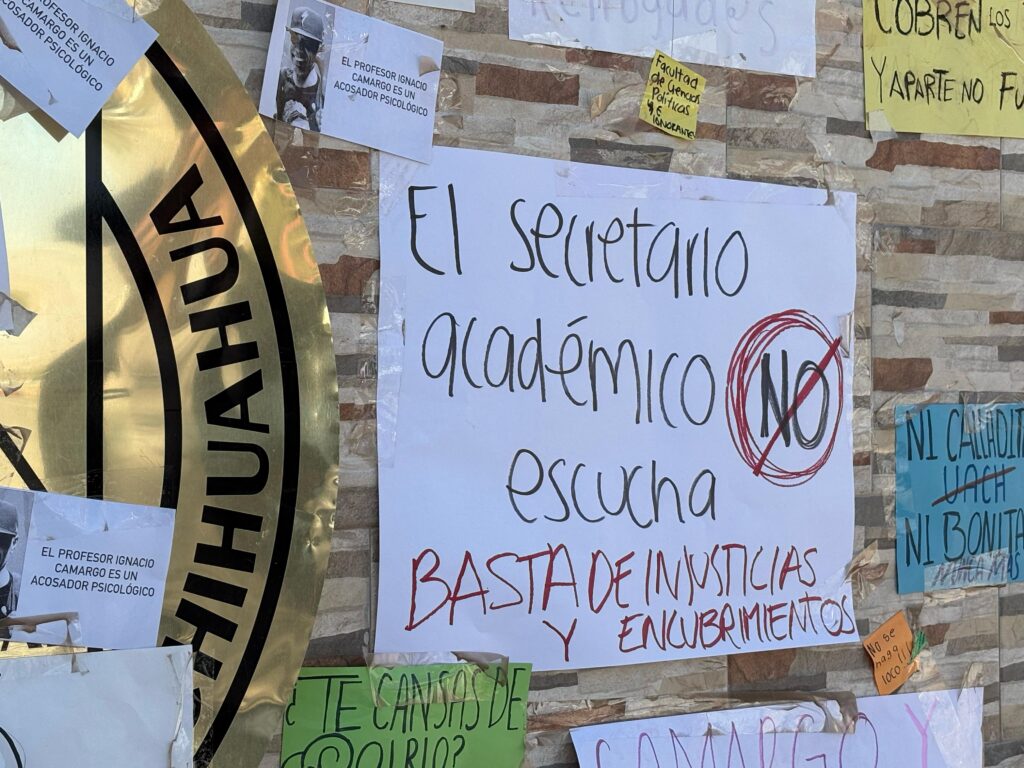 PROFESOR IGNACIO
CAMARGO ES UN
ACOSADOR PSICOLÓGICO
EL PROFESOR IGNACIO
CAMARGO ES UN
ACOSADOR PSICOLÓGICO
Facultad
de Ciencias
Políticas
COBREN LOS
Y APARTE NO FU
CHIHUAHUA
El secretario
académico NO
escucha
BASTA DE INJUSTICIAS
Y ENCUBRIMIENTOS
NI CALLADIT
UACH
NI BONITA
EL PROFESOR IGNACIO
CAMARGO ES UN
ACOSADOR PSICOLÓGICO
No se
haga
loco!!!
¿TE CANSAS DE
CAMARGO Y